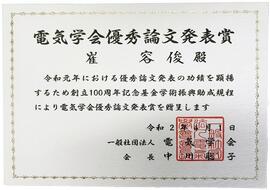 電気学会優秀論文発表賞
崔 容俊 殿
令和元年における優秀論文発表の功績を顕揚
するため創立100周年記念基金学術振興助成規程
により電気学会優秀論文発表賞を贈呈します
令和2年 月 日
一般社団法人 電気学会
会長 中川聡子